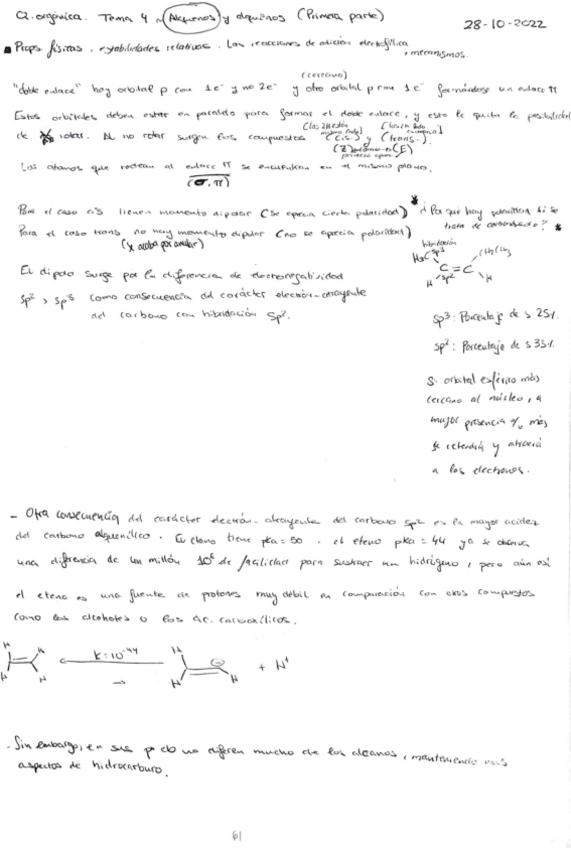 Q. orgánica. Tema 4 ~ Alquenos y alquinos (Primera parte) 28-10-2022
Props físicas, estabilidades relativas. Las reacciones de adición electrofílica, mecanismos.
(cercano)
"doble enlace" hay orbital p con 1e⁻ y no 2e⁻ y otro orbital p con 1e⁻ formándose un enlace π
Estos orbitales deben estar en paralelo para formar el doble enlace, y esto le quita la posibilidad
de rotar. Al no rotar surgen los compuestos (cis) y (trans.)
(Z) (E)
Los átomos que rodean al enlace π se encuentran en el mismo plano.
(σ, π)
Para el caso cis tienen momento dipolar (se aprecia cierta polaridad) * ¿Por qué hay polaridad si se
Para el caso trans no hay momento dipolar (no se aprecia polaridad) trata de carbonos? *
(se acaba por anular)
hibridación
H₃C sp³ CH₂CH₃
C = C
H sp² H
El dipolo surge por la diferencia de electronegatividad
sp² > sp³ como consecuencia del carácter electrón-atrayente
del carbono con hibridación sp².
sp³: Porcentaje de s 25%
sp²: Porcentaje de s 33%
S: orbital esférico más
cercano al núcleo, a
mayor presencia %, más
se retendrá y atraerá
a los electrones.
- Otra consecuencia del carácter electrón-atrayente del carbono sp² es la mayor acidez
del carbono alquenílico. El etano tiene pka = 50, el eteno pKa = 44 ya se observa
una diferencia de un millón 10⁶ de facilidad para sustraer un hidrógeno, pero aún así
el eteno es una fuente de protones muy débil en comparación con otros compuestos
como los alcoholes o los ác. carboxílicos.
H H H H K=10⁻⁴⁴ H H H ⊖ + H⁺
- Sin embargo, en sus p no difieren mucho de los alcanos, manteniendo
aspectos de hidrocarburo.
61